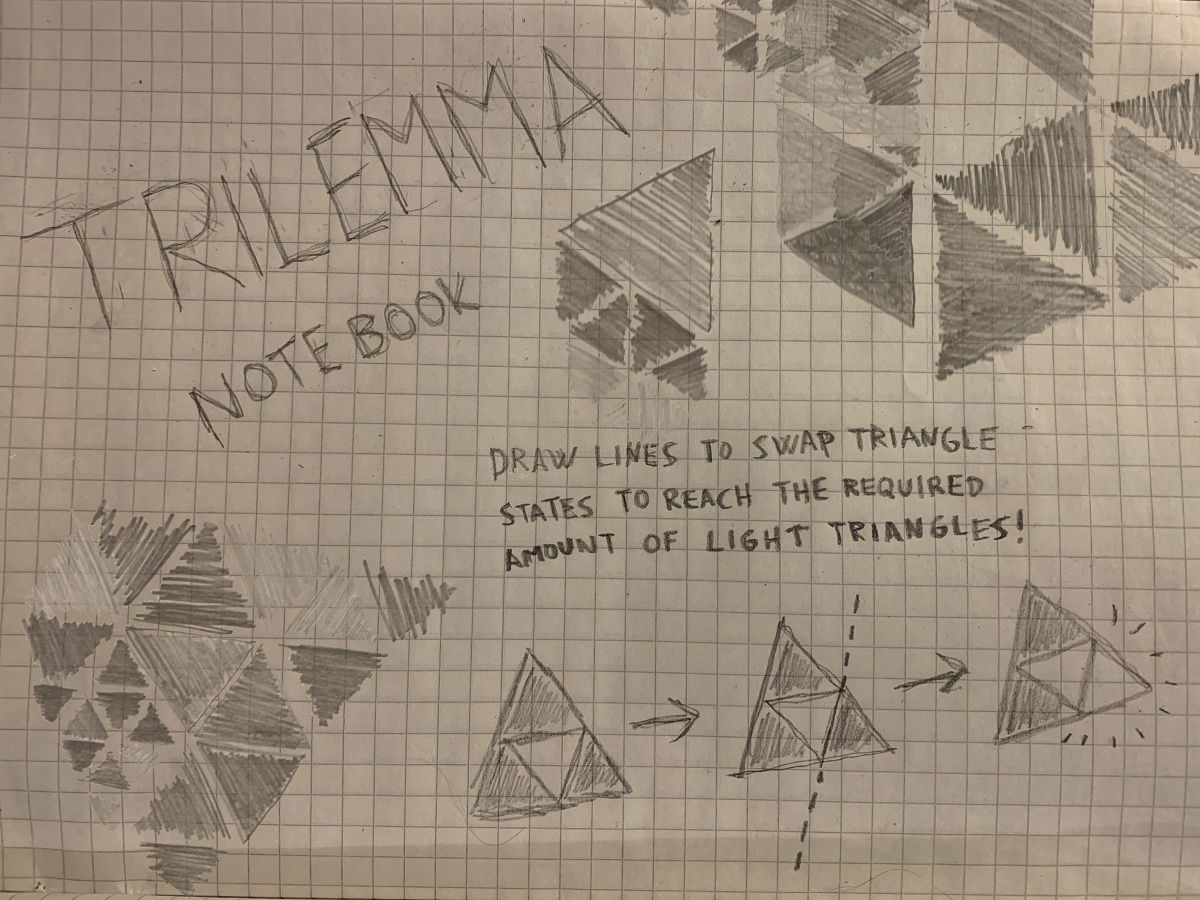 TRILEMMA
NOTEBOOK
DRAW LINES TO SWAP TRIANGLE
STATES TO REACH THE REQUIRED
AMOUNT OF LIGHT TRIANGLES!